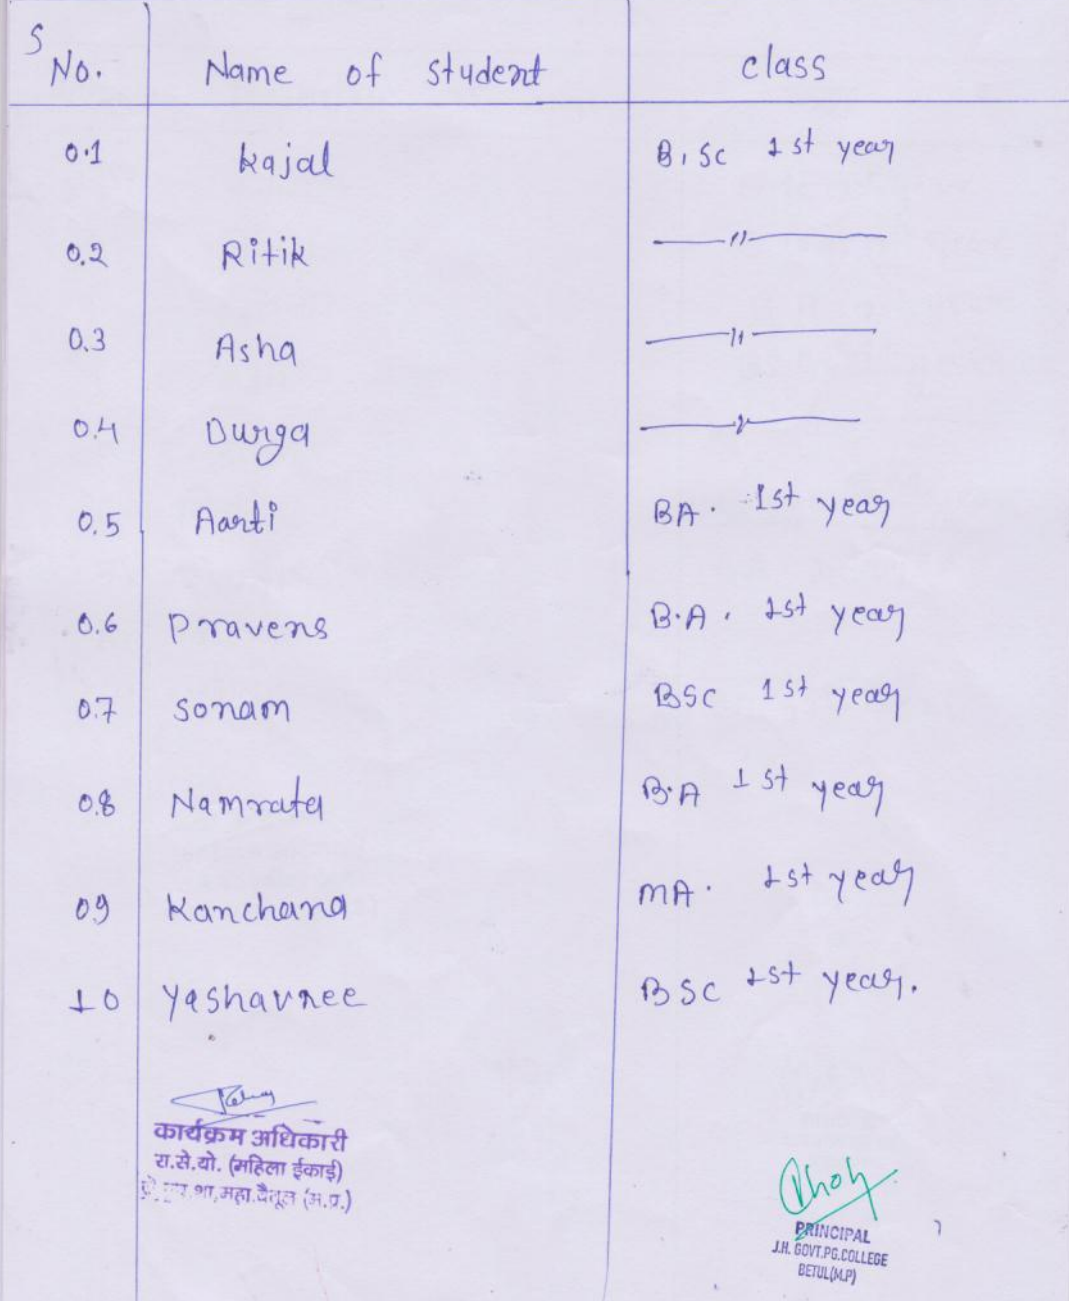 S No. Name of student class
0.1 Kajal B.Sc 1st year
0.2 Ritik —〃—
0.3 Asha —〃—
0.4 Durga —〃—
0.5 Aarti BA. 1st year
0.6 Pravens B.A. 1st year
0.7 Sonam BSC 1st year
0.8 Namrata B.A 1st year
09 Kanchana MA. 1st year
10 Yashavnee BSC 1st year.
कार्यक्रम अधिकारी
रा.से.यो. (महिला ईकाई)
महा.बैतूल (म.प्र.)
PRINCIPAL
J.H. GOVT.PG.COLLEGE
BETUL(M.P)